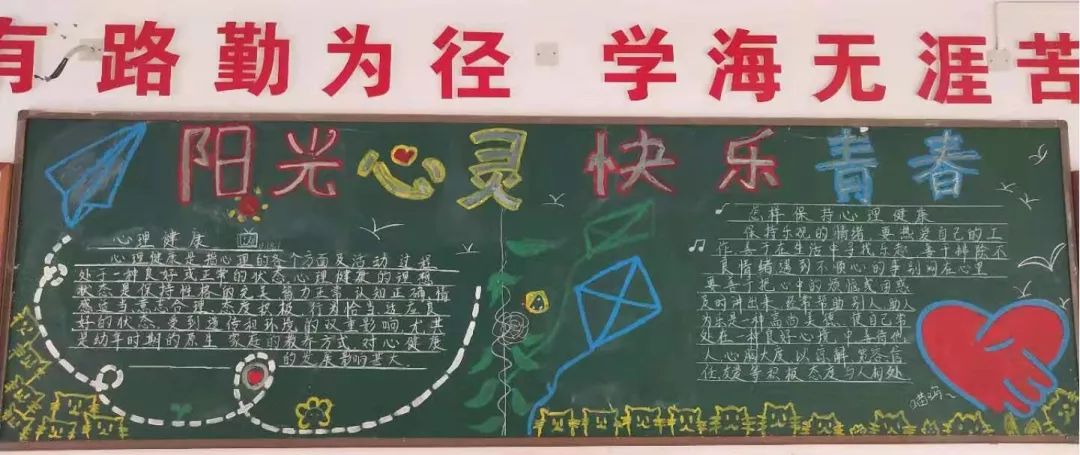 有路勤为径 学海无涯苦
阳光心灵 快乐青春
心理健康
心理健康是指心理的各个方面及活动过程
处于一种良好或正常的状态。心理健康的理想
状态是保持性格的完美、智力正常、认知正确、情
感适当、意志合理、态度积极、行为恰当、适应良
好的状态。受到遗传和环境的双重影响,尤其
是幼年时期的原生家庭的教养方式,对心理健康
的发展影响甚大。
怎样保持心理健康
保持乐观的情绪,要热爱自己的工
作,善于在生活中寻找乐态,善于排除不
良情绪,遇到不顺心的事别闷在心里
要善于把心中的烦恼或困惑
及时讲出来,经常帮助别人,助人
为乐是一种高尚美德,使自己常
处在一种良好心境中,善待他
人,心胸大度,以谅解、宽容、信
任、友爱等积极态度与人相处